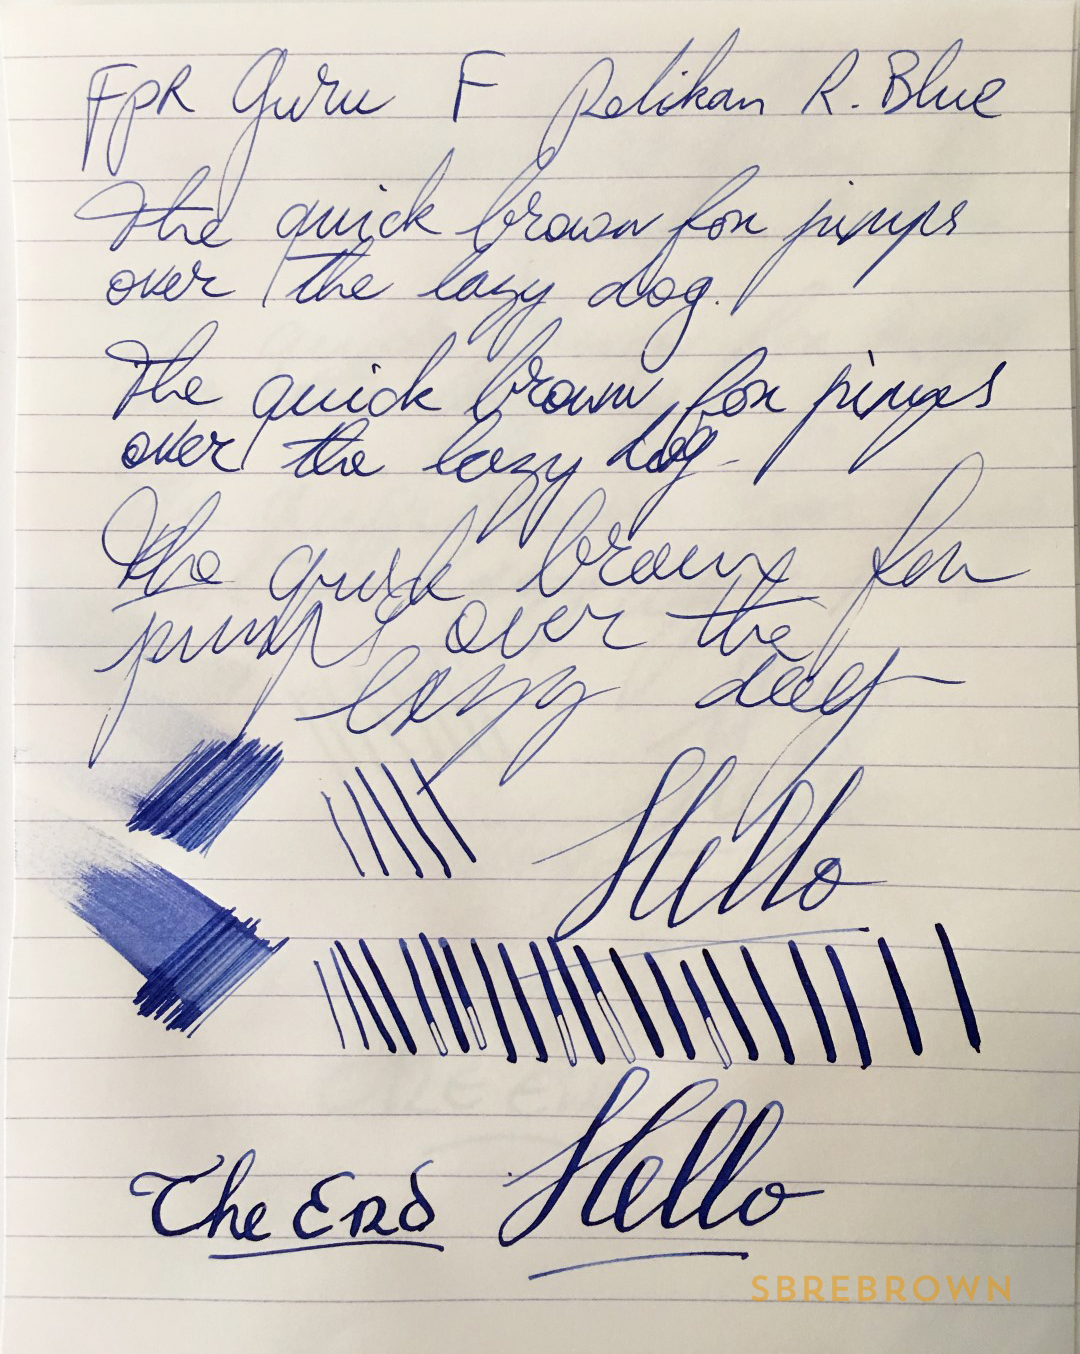 FPR Guru F Pelikan R. Blue
The quick brown fox jumps
over the lazy dog.
The quick brown fox jumps
over the lazy dog.
The quick brown fox
jumps over the
lazy dog
Hello
The End Hello
SBREBROWN